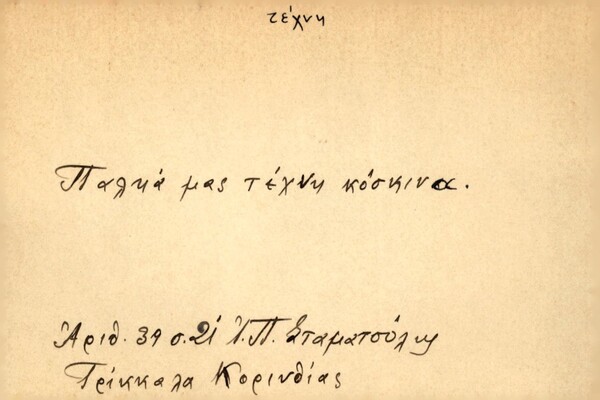 τέχνη
Παλῃά μας τέχνη κόσκινα.
Ἀριθ. 39 σ.21 Ἰ.Π. Σταματούλης
Τρίκκαλα Κορινθίας